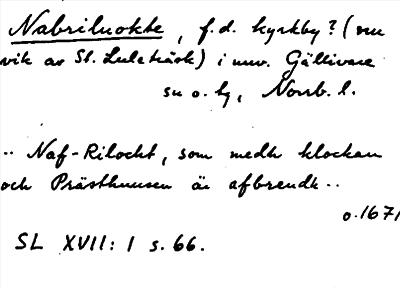 Nabriluokte, f.d. kyrkby? (nu
vik av St. Luleträsk) i nuv. Gällivare
sn o. hg, Norrb. l.
.. Naf-Rilocht, som medh klockan
och Prästhuusen är afbrendt ..
o. 1671
SL XVII: 1 s. 66.